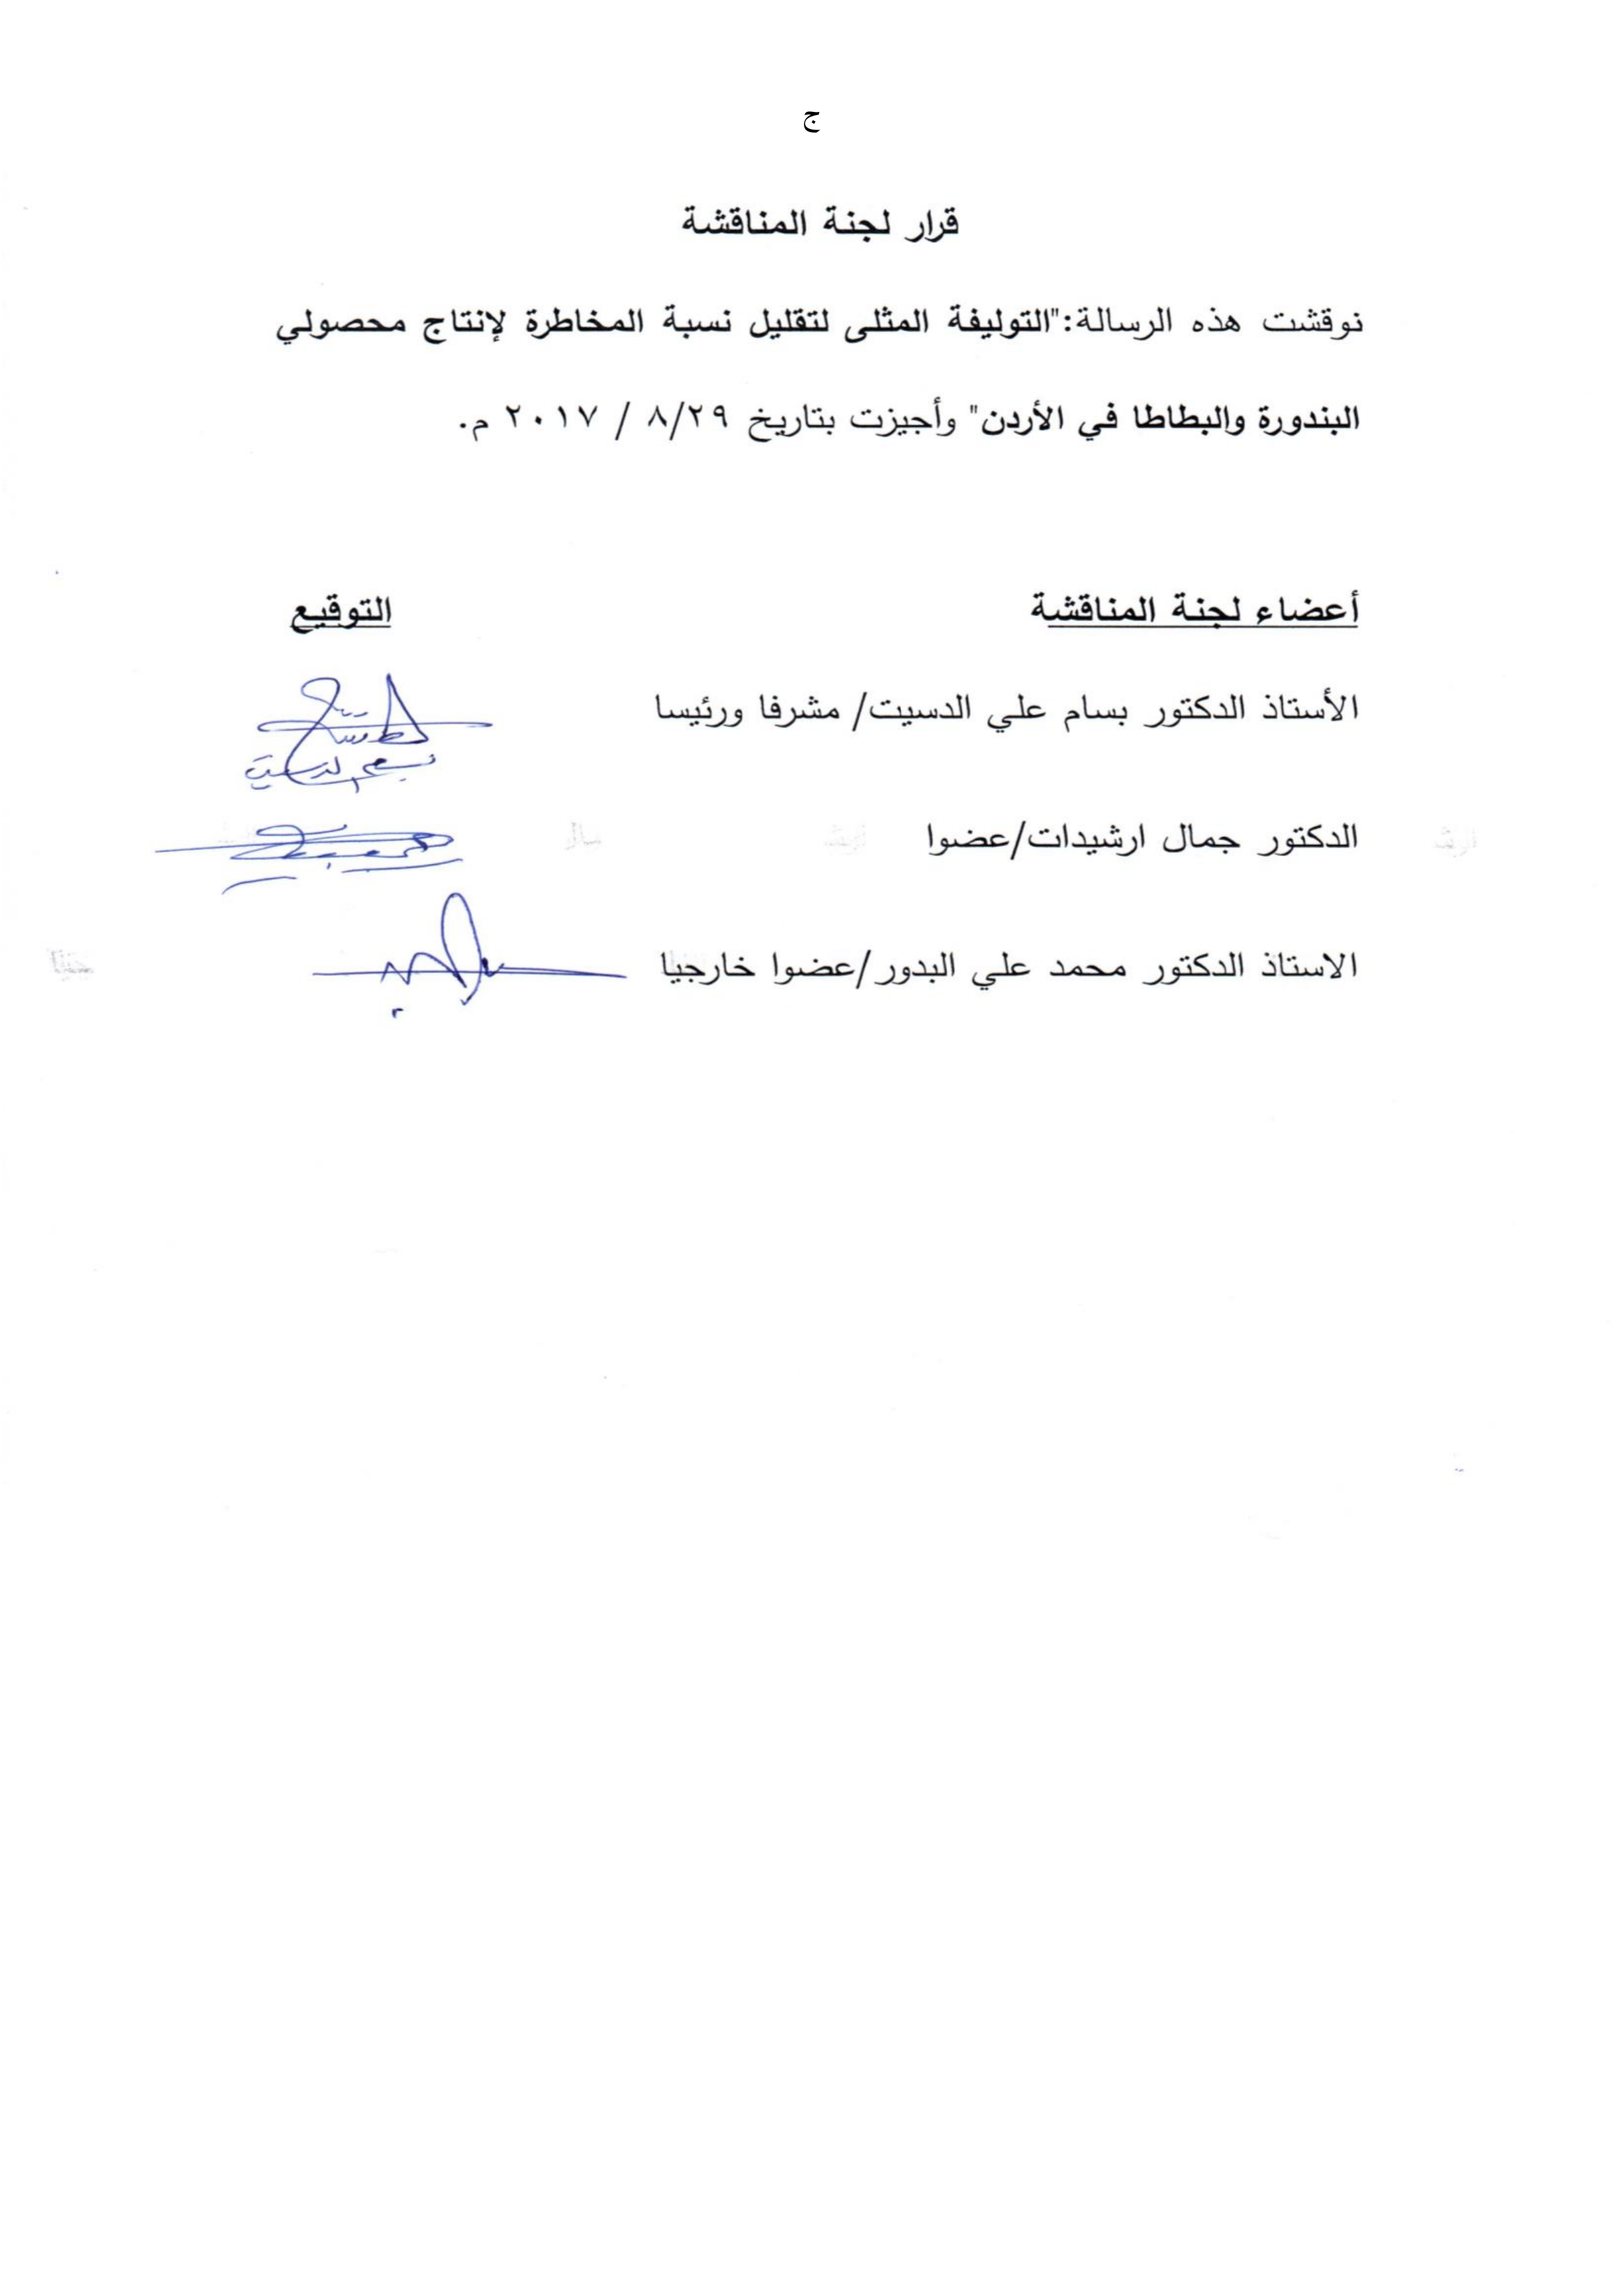 ج
قرار لجنة المناقشة
نوقشت هذه الرسالة:"التوليفة المثلى لتقليل نسبة المخاطرة لإنتاج محصولي
البندورة والبطاطا في الأردن" وأجيزت بتاريخ ٨/٢٩ / ٢٠١٧ م.
أعضاء لجنة المناقشة التوقيع
الأستاذ الدكتور بسام علي الدسيت/ مشرفا ورئيسا
الدكتور جمال ارشيدات/عضوا
الاستاذ الدكتور محمد علي البدور/عضوا خارجيا